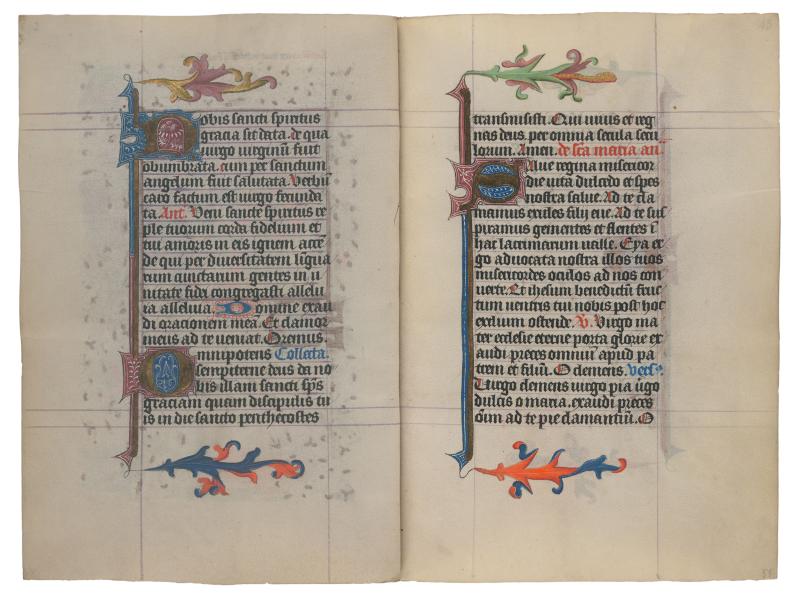 Nobis sancti spiritus
gracia sit data. de qua
uirgo uirginū fuit
obumbrata. cum per sanctum
angelum fuit salutata. Verbū
caro factum est uirgo fecunda
ta. Ant. Veni sancte spiritus re
ple tuorum corda fidelium et
tui amoris in eis ignem accē
de qui per diuersitatem līgua
rum cunctarum gentes in u
nitate fidei congregasti allelu
ia alleluia. Domine exau
di oracionem meā. Et clamor
meus ad te ueniat. Oremus.
Omnipotens Collecta.
sempiterne deus da no
bis illam sancti sp̄s
graciam quam discipulis tu
is in die sancto penthecostes
transmisisti. Qui uiuis et reg
nas deus. per omnia secula secu
lorum. Amen. de sc̄a maria an̄.
Salue regina misericor
die uita dulcedo et spes
nostra salue. Ad te cla
mamus exules filij eue. Ad te sus
piramus gementes et flentes ī
hac lacrimarum ualle. Eya er
go aduocata nostra illos tuos
misericordes oculos ad nos con
uerte. Et ihesum benedictū fruc
tum uentris tui nobis post hoc
exilium ostende. V. Virgo ma
ter ecclesie eterne porta glorie ex
audi preces omniū apud pa
trem et filiū. O clemens. vers9.
Virgo clemens uirgo pia ūgo
dulcis o maria. exaudi preces
oīm ad te pie clamantiū. O